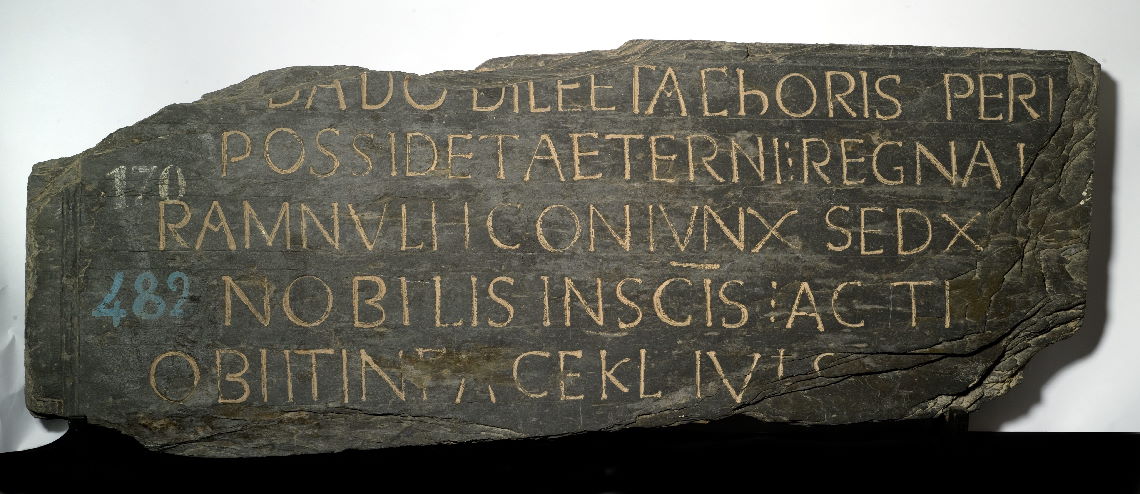 DILECTA ChORIS PERI
POSSIDET AETERNI⁝REGNA
170
RAMNVLH CONIVNX SEDX
482
NOBILIS INS SCĪS ⁝AC TI
OBIIT IN CE KL